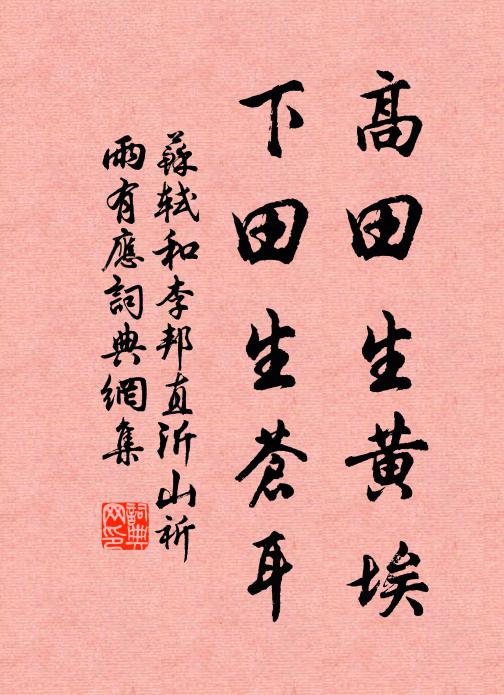 高田生黃埃
下田生蒼耳
蘇軾和李邦直沂山祈
雨有應詞典網集
詞典
网印